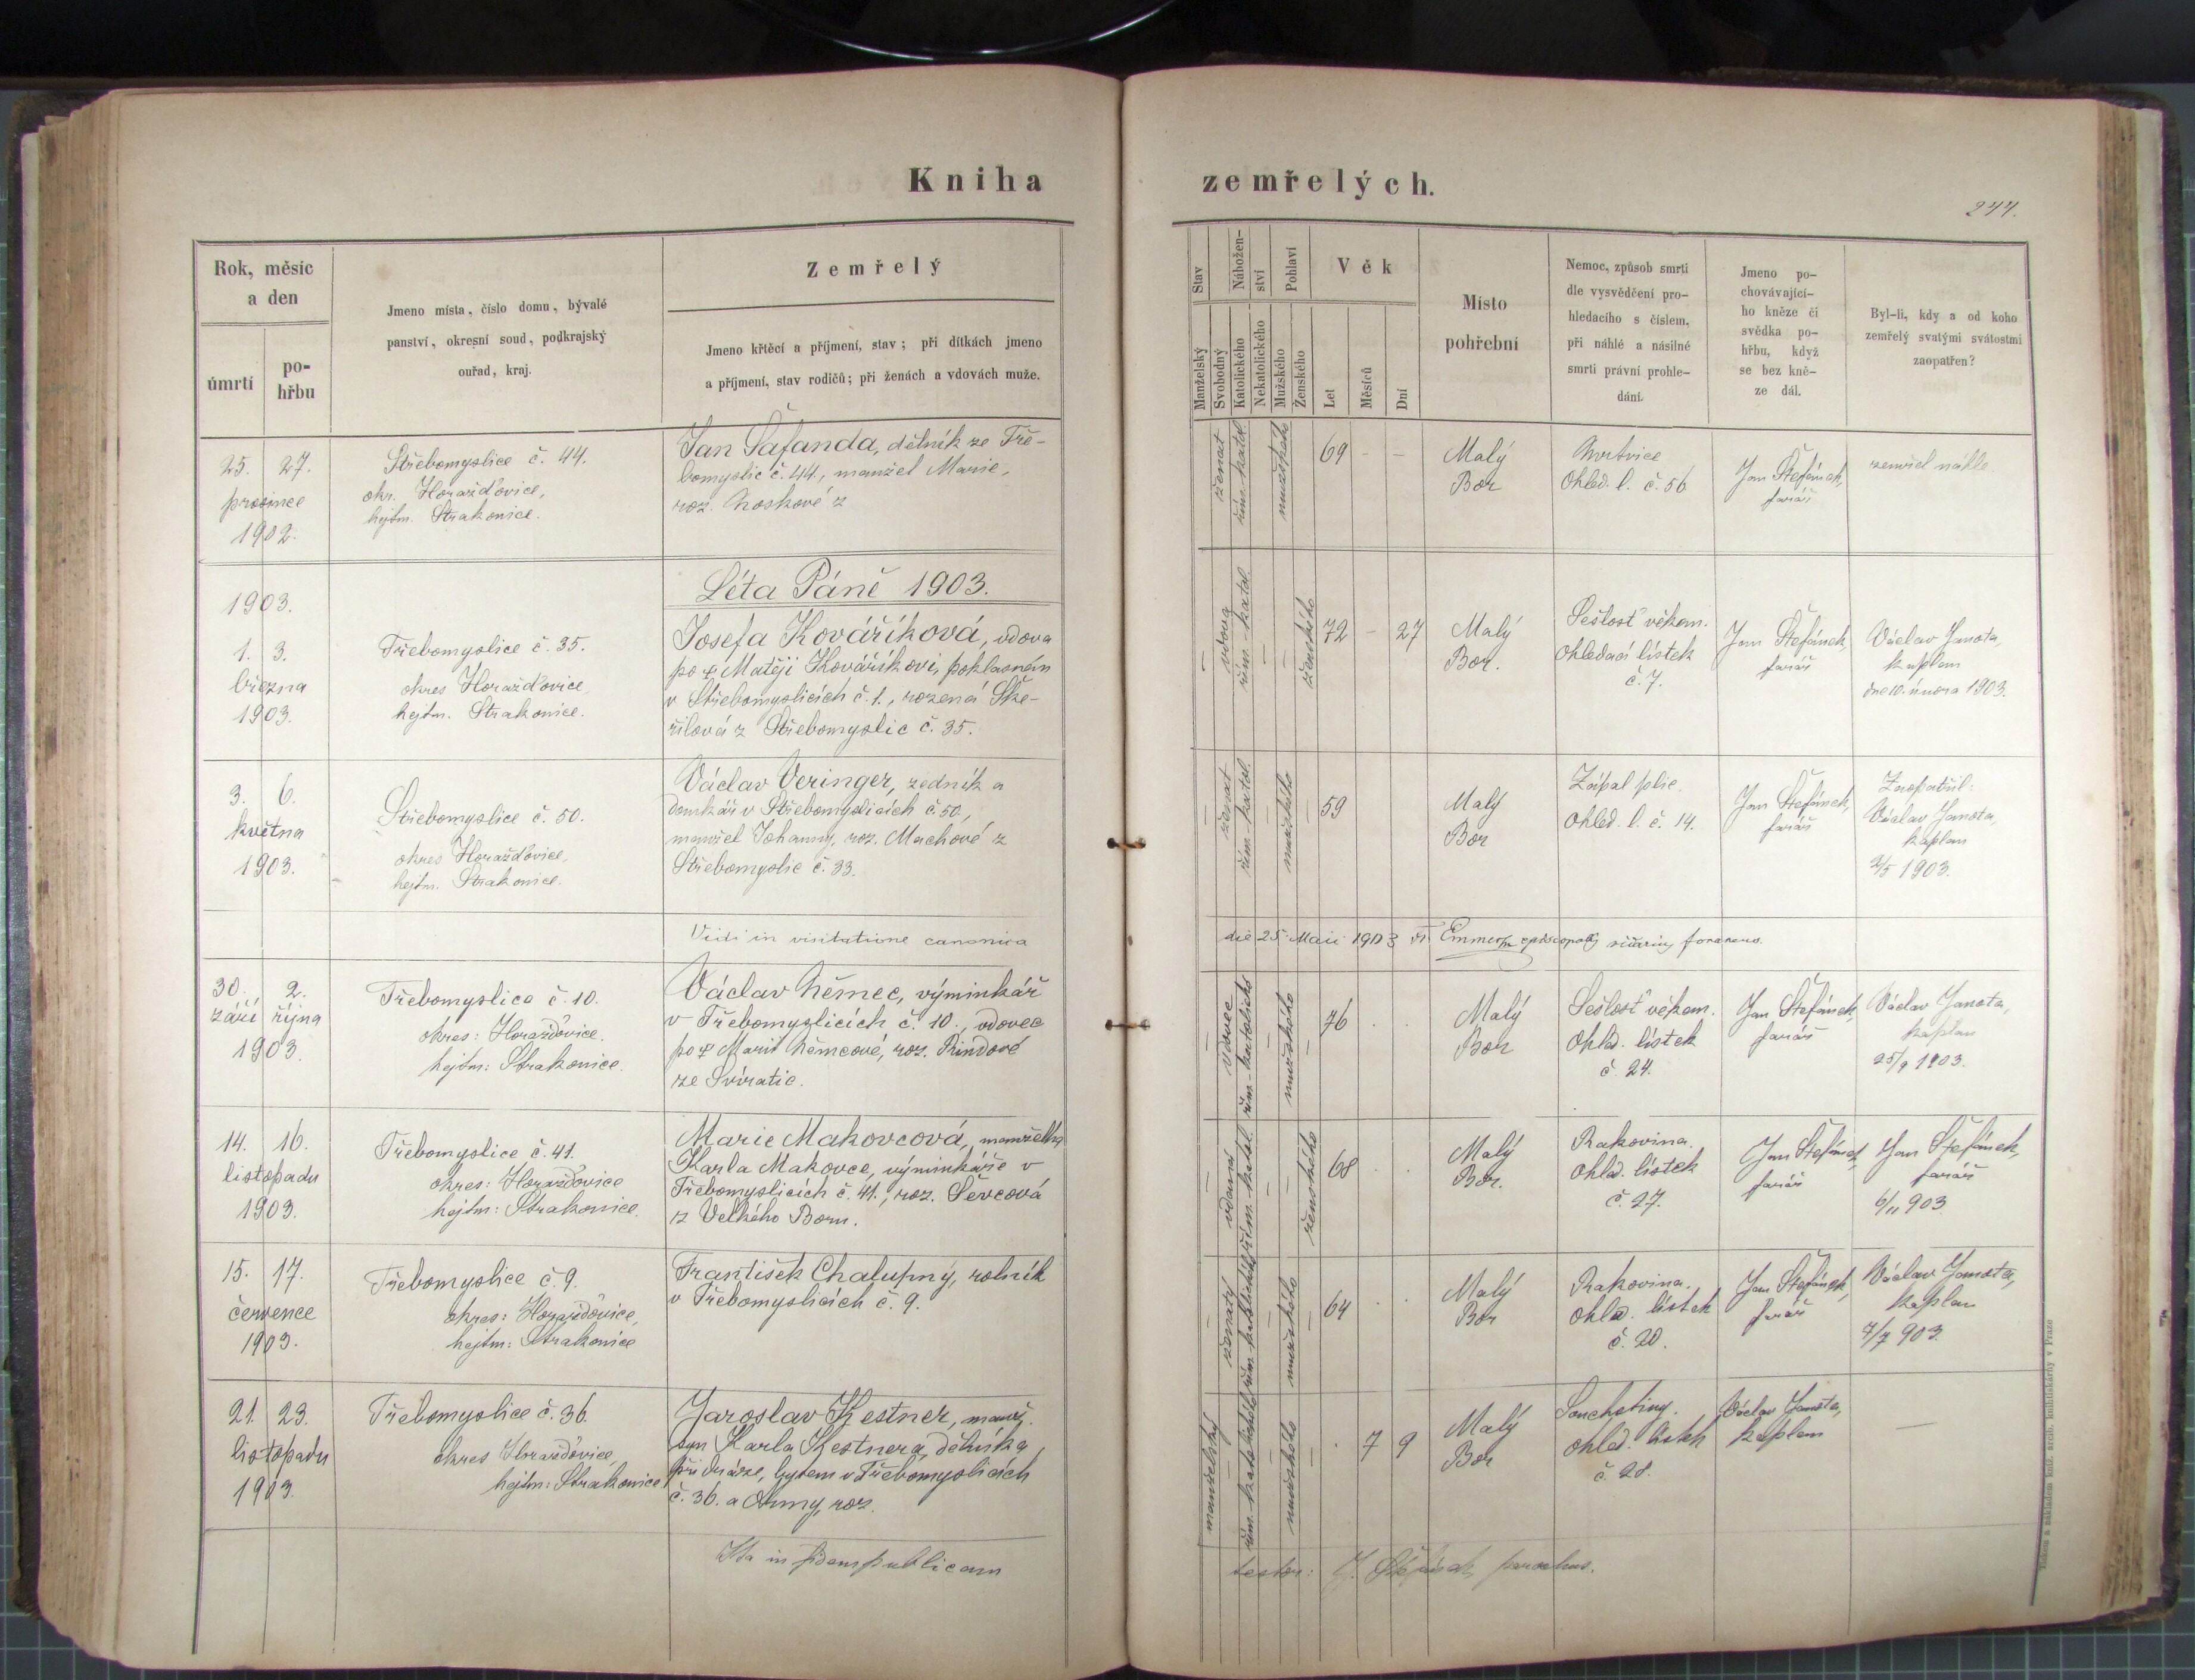 Kniha zemřelých.
244.
Rok, měsíc
a den
úmrtí
po-
hřbu
Jmeno místa, číslo domu, bývalé
panství, okresní soud, podkrajský
ouřad, kraj.
Zemřelý
Jmeno křtěcí a příjmení, stav; při dítkách jmeno
a příjmení, stav rodičů; při ženách a vdovách muže.
Stav
Manželský
Svobodný
Nábožen-
ství
Katolického
Nekatolického
Pohlaví
Mužského
Ženského
Věk
Let
Měsíců
Dní
Místo
pohřební
Nemoc, způsob smrti
dle vysvědčení pro-
hledacího s číslem,
při náhlé a násilné
smrti právní prohle-
dání.
Jmeno po-
chovávající-
ho kněze či
svědka po-
hřbu, když
se bez kně-
ze dál.
Byl-li, kdy a od koho
zemřelý svatými svátostmi
zaopatřen?
25. 27.
prosince
1902.
Střebomyslice č. 44.
okr. Horažďovice,
hejtm. Strakonice.
Jan Šafanda, dělník ze Tře-
bomyslic č. 44., manžel Marie,
roz. Noskové z
ženat
řím. katol.
mužského
69 - -
Malý
Bor
Mrtvice
Ohled. l. č. 56
Jan Štefánek,
farář
zemřel náhle.
Léta Páně 1903.
1903.
1. 3.
března
1903.
Třebomyslice č. 35.
okres Horažďovice,
hejtm. Strakonice.
Josefa Kováříková, vdova
po † Matěji Kováříkovi, poklasném
v Střebomyslicích č. 1., rozená
z Střebomyslic č. 35.
vdova
řím. katol.
ženského
72 - 27
Malý
Bor.
Sešlosť věkem.
Ohledací lístek
č. 7.
Jan Štefánek,
farář
Václav Janota,
kaplan
dne 10. února 1903.
3. 6.
května
1903.
Střebomyslice č. 50.
okres Horažďovice,
hejtm. Strakonice.
Václav Veringer, zedník a
domkář v Střebomyslicích č. 50,
manžel Johanny, roz. Machové z
Střebomyslic č. 33.
ženat
řím. katol.
mužského
59
Malý
Bor
Zápal plic.
Ohled. l. č. 14.
Jan Štefánek,
farář
Zaopatřil:
Václav Janota,
kaplan
2/5 1903.
Vidi in visitatione canonica
die 25. Maii 1903
30. 2.
září října
1903.
Třebomyslice č. 10.
okres: Horažďovice.
hejtm: Strakonice.
Václav Němec, výminkář
v Třebomyslicích č. 10., vdovec
po † Marii Němcové, roz. Rindové
ze Svíratic.
vdovec
řím.-katolického
mužského
76 . .
Malý
Bor
Sešlosť věkem.
Ohled. lístek
č. 24.
Jan Štefánek,
farář
Václav Janota,
kaplan
25/9 1903.
14. 16.
listopadu
1903.
Třebomyslice č. 41.
okres: Horažďovice
hejtm: Strakonice.
Marie Makovcová, manželka
Karla Makovce, výminkáře v
Třebomyslicích č. 41., roz. Ševcová
z Velkého Boru.
vdaná
řím. katol.
ženského
68 . .
Malý
Bor.
Rakovina.
Ohled. lístek
č. 27.
Jan Štefánek,
farář
Jan Štefánek,
farář
6/11 903
15. 17.
července
1903.
Třebomyslice č. 9.
okres: Horažďovice,
hejtm: Strakonice
František Chalupný, rolník
v Třebomyslicích č. 9.
ženatý
řím. katolického
mužského
64 . .
Malý
Bor
Rakovina.
Ohled. lístek
č. 20.
Jan Štefánek,
farář
Václav Janota,
kaplan
7/7 903.
21. 23.
listopadu
1903
Třebomyslice č. 36.
okres Horažďovice,
hejtm: Strakonice
Jaroslav Kestner, manž.
syn Karla Kestnera, dělníka
při dráze, bytem v Třebomyslicích
č. 36. a Anny, roz.
manželský
řím. katolického
mužského
. 7 9
Malý
Bor
Souchotiny.
ohled. lístek
č. 28.
Václav Janota,
kaplan
—
Ita in fidem publicam
testor: J. Štefánek parochus.